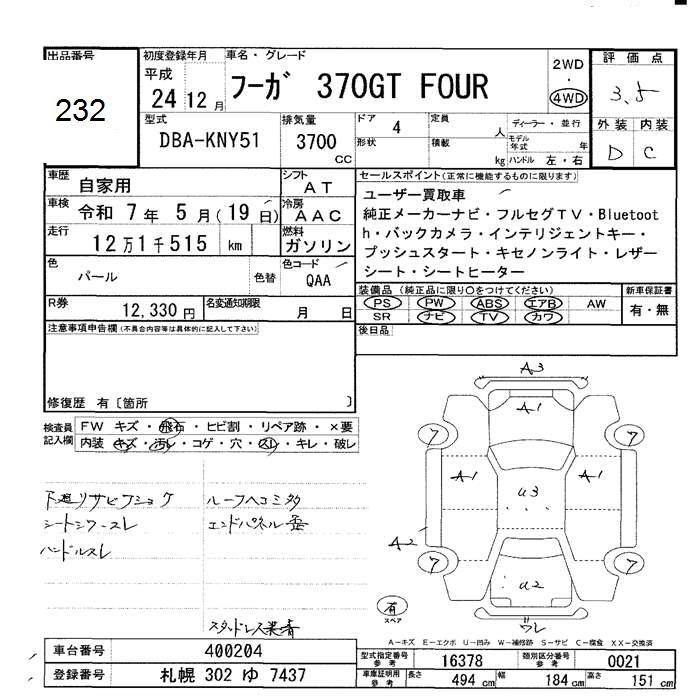 出品番号
232
初度登録年月
平成
24 12 月
車名・グレード
フーガ 370GT FOUR
2WD
・
4WD
評価点
3.5
外装 内装
D C
型式
DBA-KNY51
排気量
3700
CC
ドア 4
形状
定員 人
積載 kg
ディーラー・並行
モデル年式 年
ハンドル 左・右
車歴
自家用
シフト
AT
車検
令和 7年 5月(19日)
冷房
AAC
走行
12万1千515 km
燃料
ガソリン
色
パール
色替
色コード
QAA
R券
12,330円
名変通知期限
月 日
セールスポイント(正常に機能するものに限ります)
ユーザー買取車
純正メーカーナビ・フルセグTV・Bluetoot
h・バックカメラ・インテリジェントキー・
プッシュスタート・キセノンライト・レザー
シート・シートヒーター
装備品(純正品に限り○をつけてください)
PS PW ABS エアB AW
SR ナビ TV カワ
新車保証書
有・無
後日品
注意事項申告欄(不具合内容等は具体的に記入して下さい)
修復歴 有〔箇所 〕
検査員
記入欄
FW キズ・飛石・ヒビ割・リペア跡・×要
内装 キズ・汚レ・コゲ・穴・スレ・キレ・破レ
下廻リサビフショク
シートシワ・スレ
ハンドルスレ
ルーフヘコミ多
エンドパネル歪
スタッドレス装着
A3
A1
7
7
A1
A1
U3
A2
7
7
U2
ワレ
有
スペア
A-キズ E-エクボ U-凹み W-補修跡 S-サビ C-腐食 XX-交換済
車台番号
400204
登録番号
札幌 302 ゆ 7437
型式指定番号
参考
16378
類別区分番号
参考
0021
車庫証明用
参考
長さ 494 cm
幅 184 cm
高さ 151 cm